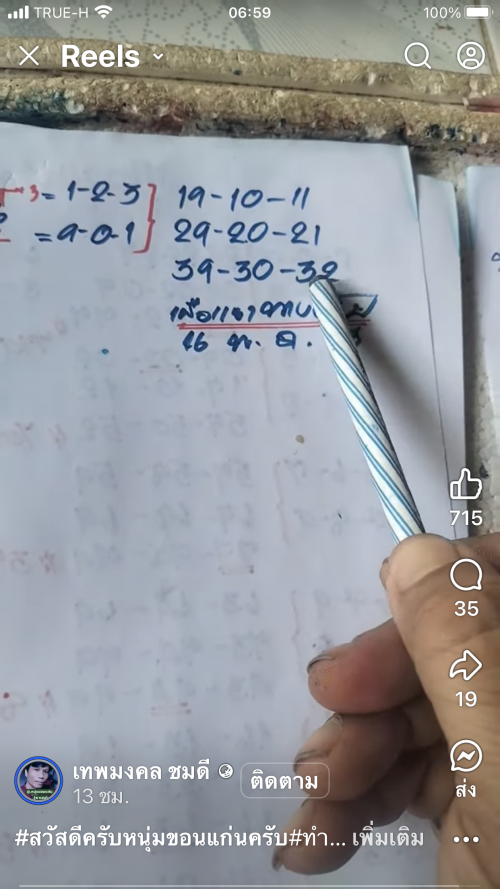 TRUE-H 06:59 100%
Reels
3 = 1-2-3
= 9-0-1
19-10-11
29-20-21
39-30-32
16 พ.ย.
715
35
19
ส่ง
เทพมงคล ชมดี
ติดตาม
13 ชม.
#สวัสดีครับหนุ่มขอนแก่นครับ#ทำ... เพิ่มเติม